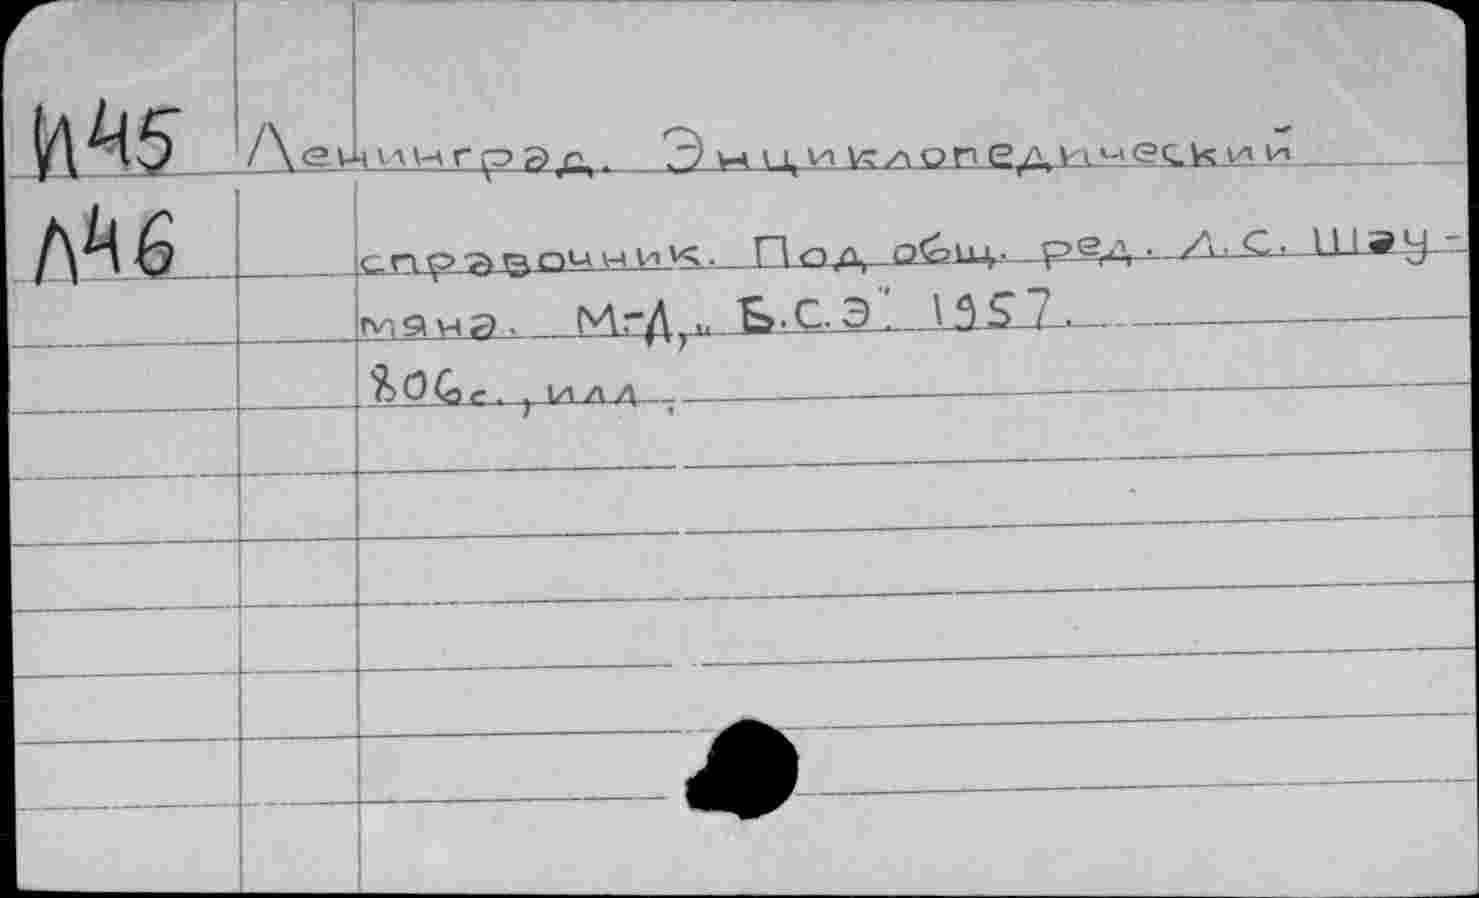 И45 Ленинград. Энциклопедический
Л46 справочник. Под общ. ред. Л.С. Шау-
мяна. М.-Л, „Б.С.Э". 1957.
806с., илл.